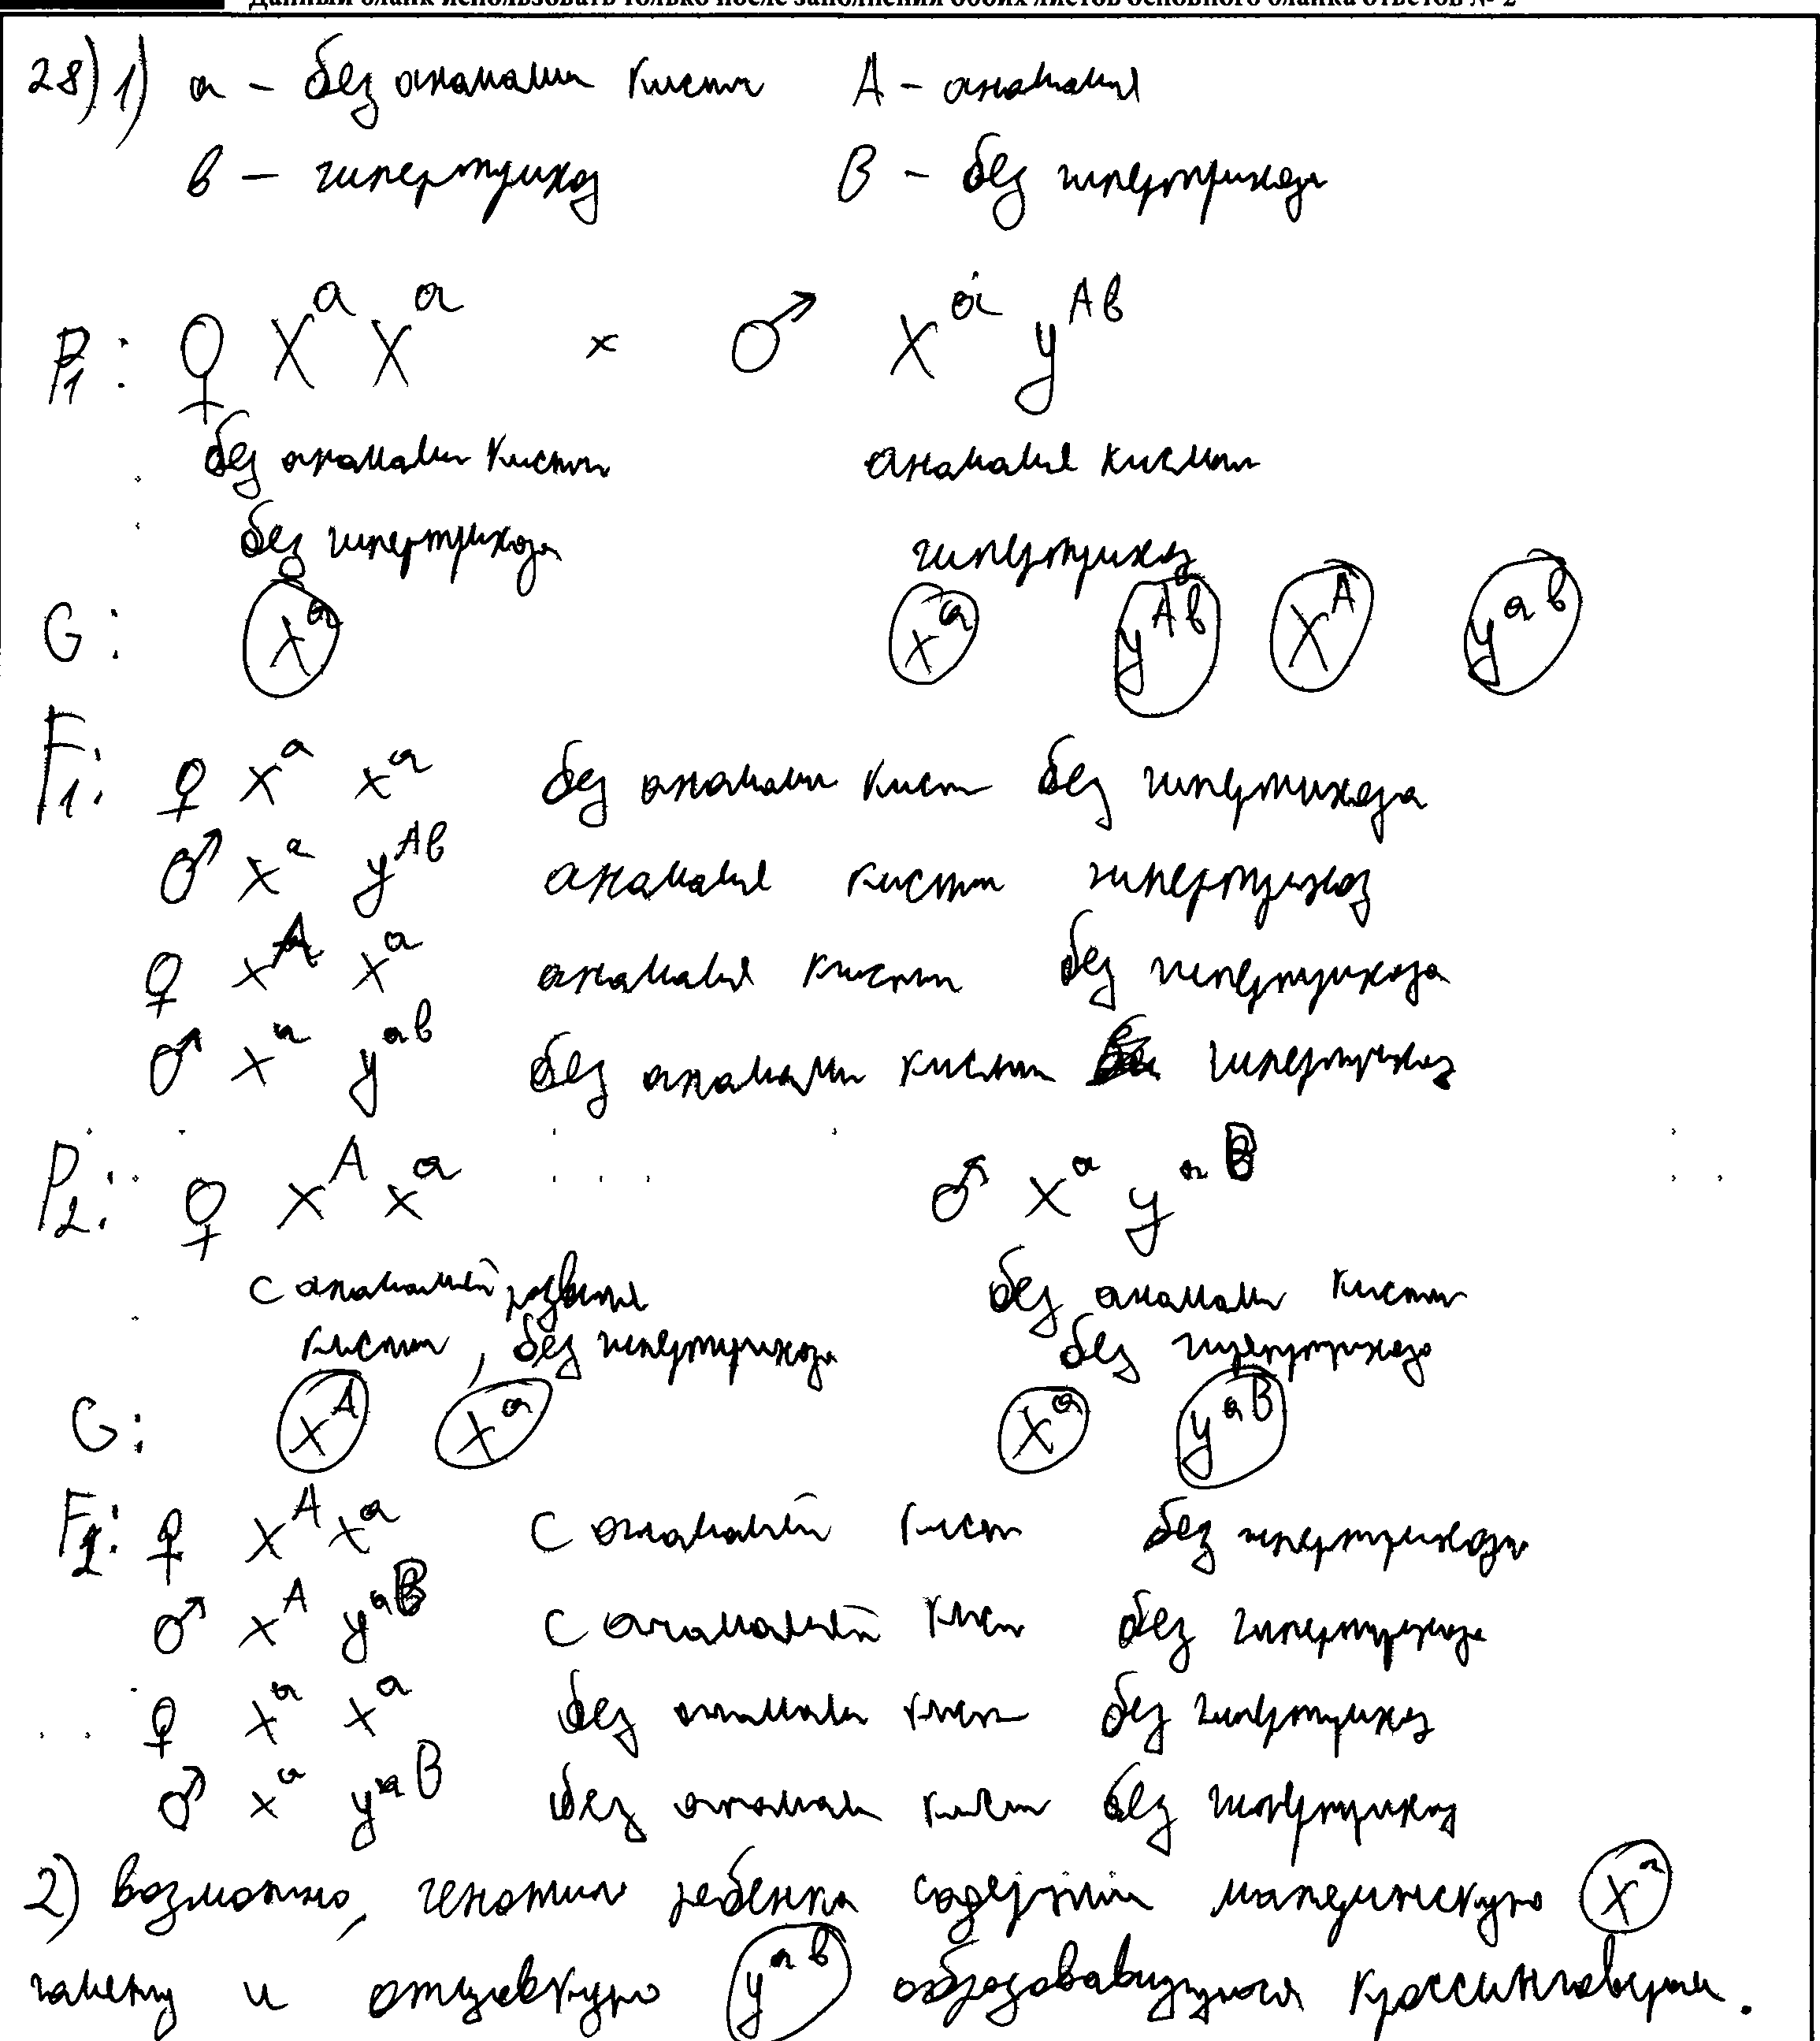 Данный бланк использовать только после заполнения обоих листов основного бланка ответов № 2
28) 1) a - без аномалии кисти A - аномалия
в - гипертрихоз B - без гипертрихоза
P1: ♀ X^a X^a × ♂ X^a y^Aв
без аномалии кисти аномалия кисти
без гипертрихоза гипертрихоз
G: X^a X^a y^Aв X^A y^aв
F1: ♀ X^a X^a без аномалии кисти без гипертрихоза
♂ X^a y^Aв аномалия кисти гипертрихоз
♀ X^A X^a аномалия кисти без гипертрихоза
♂ X^a y^aв без аномалии кисти гипертрихоз
P2: ♀ X^A X^a ♂ X^a y^aB
с аномалией развития без аномалии кисти
кисти, без гипертрихоза без гипертрихоза
G: X^A X^a X^a y^aB
F2: ♀ X^A X^a с аномалией кисти без гипертрихоза
♂ X^A y^aB с аномалией кисти без гипертрихоза
♀ X^a X^a без аномалии кисти без гипертрихоз
♂ X^a y^aB без аномалии кисти без гипертрихоз
2) возможно, генотип ребенка содержит материнскую X^a
гамету и отцовскую y^aв образовавшуюся кроссинговером.